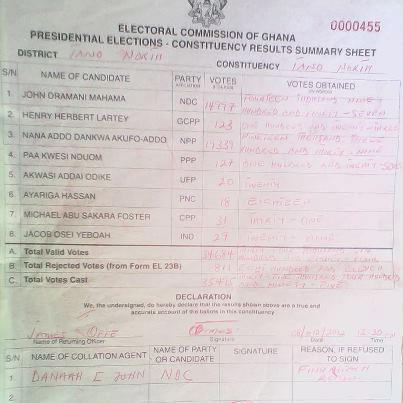 0000455
ELECTORAL COMMISSION OF GHANA
PRESIDENTIAL ELECTIONS - CONSTITUENCY RESULTS SUMMARY SHEET
DISTRICT TANO NORTH CONSTITUENCY TANO NORTH
S/N NAME OF CANDIDATE PARTY VOTES VOTES OBTAINED
1. JOHN DRAMANI MAHAMA NDC FOURTEEN THOUSAND NINE HUNDRED AND NINETY-SEVEN
2. HENRY HERBERT LARTEY GCPP 123 ONE HUNDRED AND TWENTY-THREE
3. NANA ADDO DANKWA AKUFO-ADDO NPP NINETEEN THOUSAND THREE HUNDRED AND
4. PAA KWESI NDUOM PPP 127 ONE HUNDRED AND TWENTY-SEVEN
5. AKWASI ADDAI ODIKE UFP 20 TWENTY
6. AYARIGA HASSAN PNC 18 EIGHTEEN
7. MICHAEL ABU SAKARA FOSTER CPP 31 THIRTY-ONE
8. JACOB OSEI YEBOAH IND 29 TWENTY-NINE
A. Total Valid Votes
B. Total Rejected Votes (from Form EL 23B) 811 EIGHT HUNDRED AND ELEVEN
C. Total Votes Cast AND NINETY-FIVE
DECLARATION
We, the undersigned, do hereby declare that the results shown above are a true and
accurate account of the ballots in this constituency
JAMES 08/12/2012 12:30
Name of Returning Officer Signature Date Time
S/N NAME OF COLLATION AGENT NAME OF PARTY OR CANDIDATE SIGNATURE REASON, IF REFUSED TO SIGN
1. DANAAH E JOHN NDC
2.